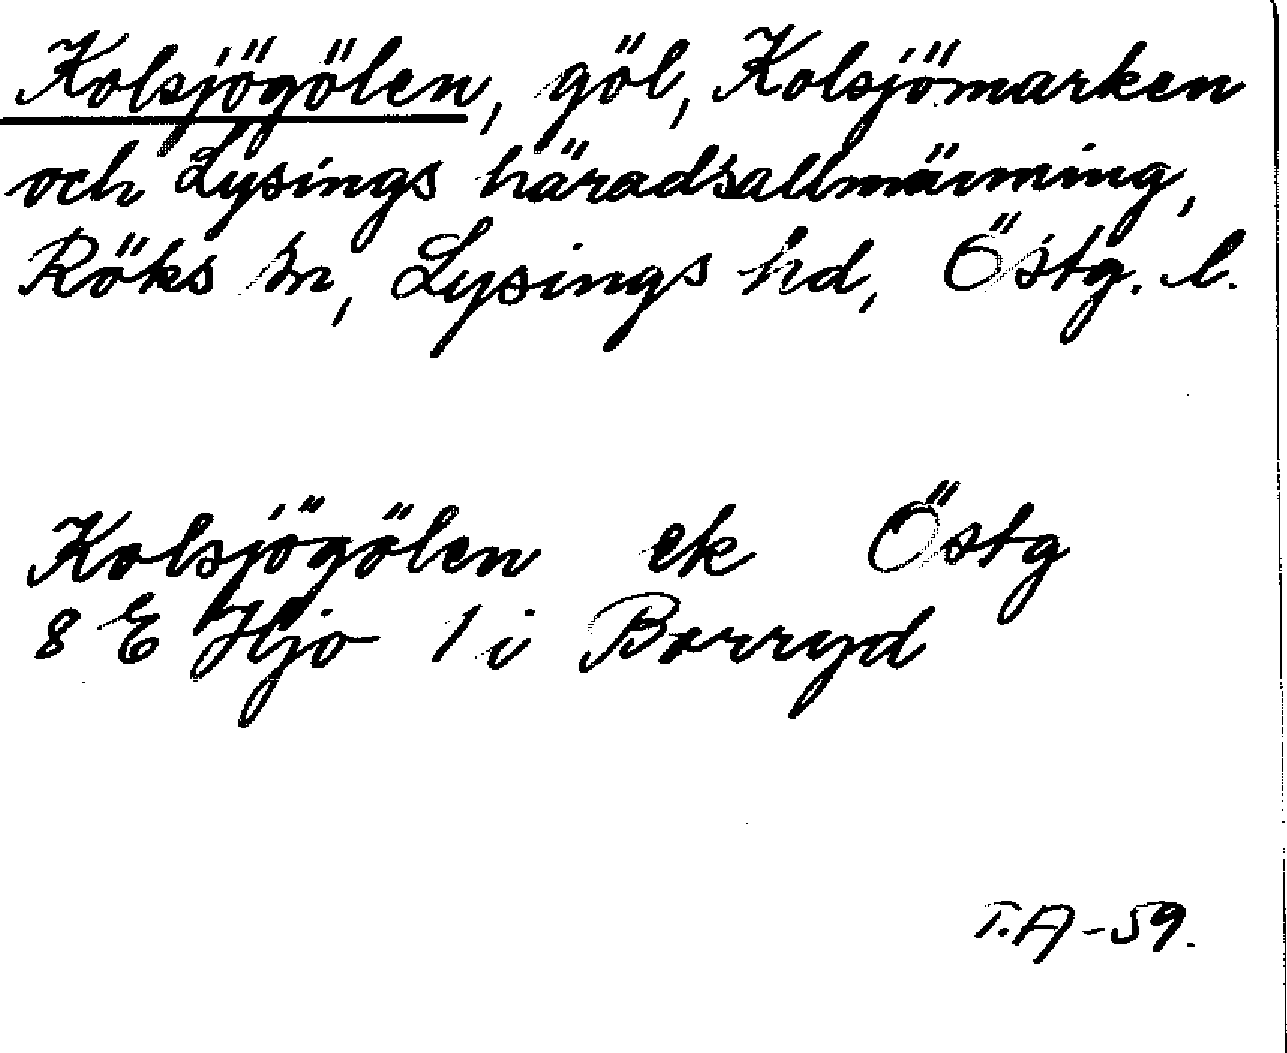 Kolsjögölen, göl, Kolsjömarken
och Lysings häradsallmänning,
Röks sn, Lysings hd, Östg. l.
Kolsjögölen ek Östg
8 E Hjo 1 i Borryd
T.A-59.